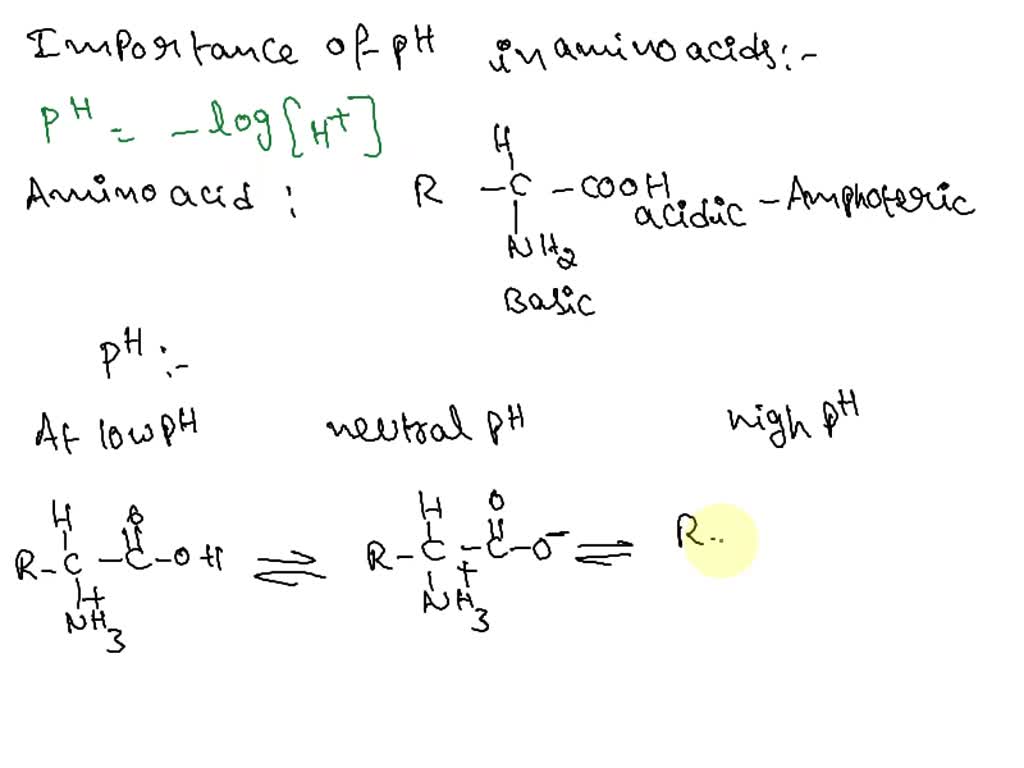 Importance of pH in amino acids:-
pH = -log[H+]
Amino acid : R -C -COOH acidic - Amphoteric
H
NH2
Basic
pH :-
At low pH neutral pH high pH
H O H O
R-C -C-O-H ⇌ R-C-C-O- ⇌ R..
+ +
NH3 NH3